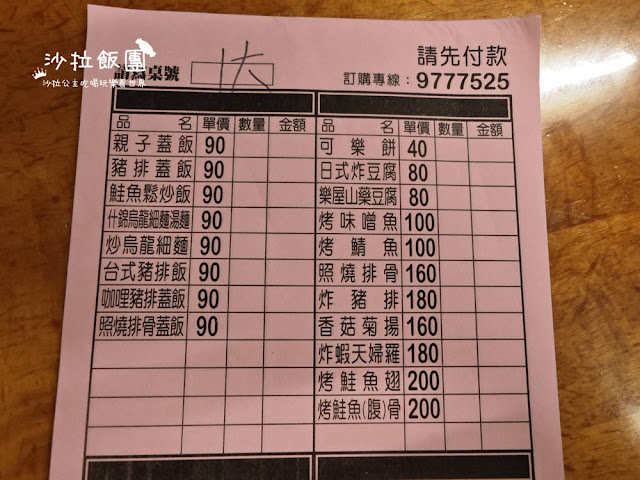 沙拉飯團
沙拉公主吃喝玩樂看世界
桌號
請先付款
訂購專線：9777525
品名 單價 數量 金額
親子蓋飯 90
豬排蓋飯 90
鮭魚鬆炒飯 90
什錦烏龍細麵湯麵 90
炒烏龍細麵 90
台式豬排飯 90
咖哩豬排蓋飯 90
照燒排骨蓋飯 90
品名 單價 數量 金額
可樂餅 40
日式炸豆腐 80
樂屋山藥豆腐 80
烤味噌魚 100
烤鯖魚 100
照燒排骨 160
炸豬排 180
香菇菊揚 160
炸蝦天婦羅 180
烤鮭魚翅 200
烤鮭魚(腹)骨 200